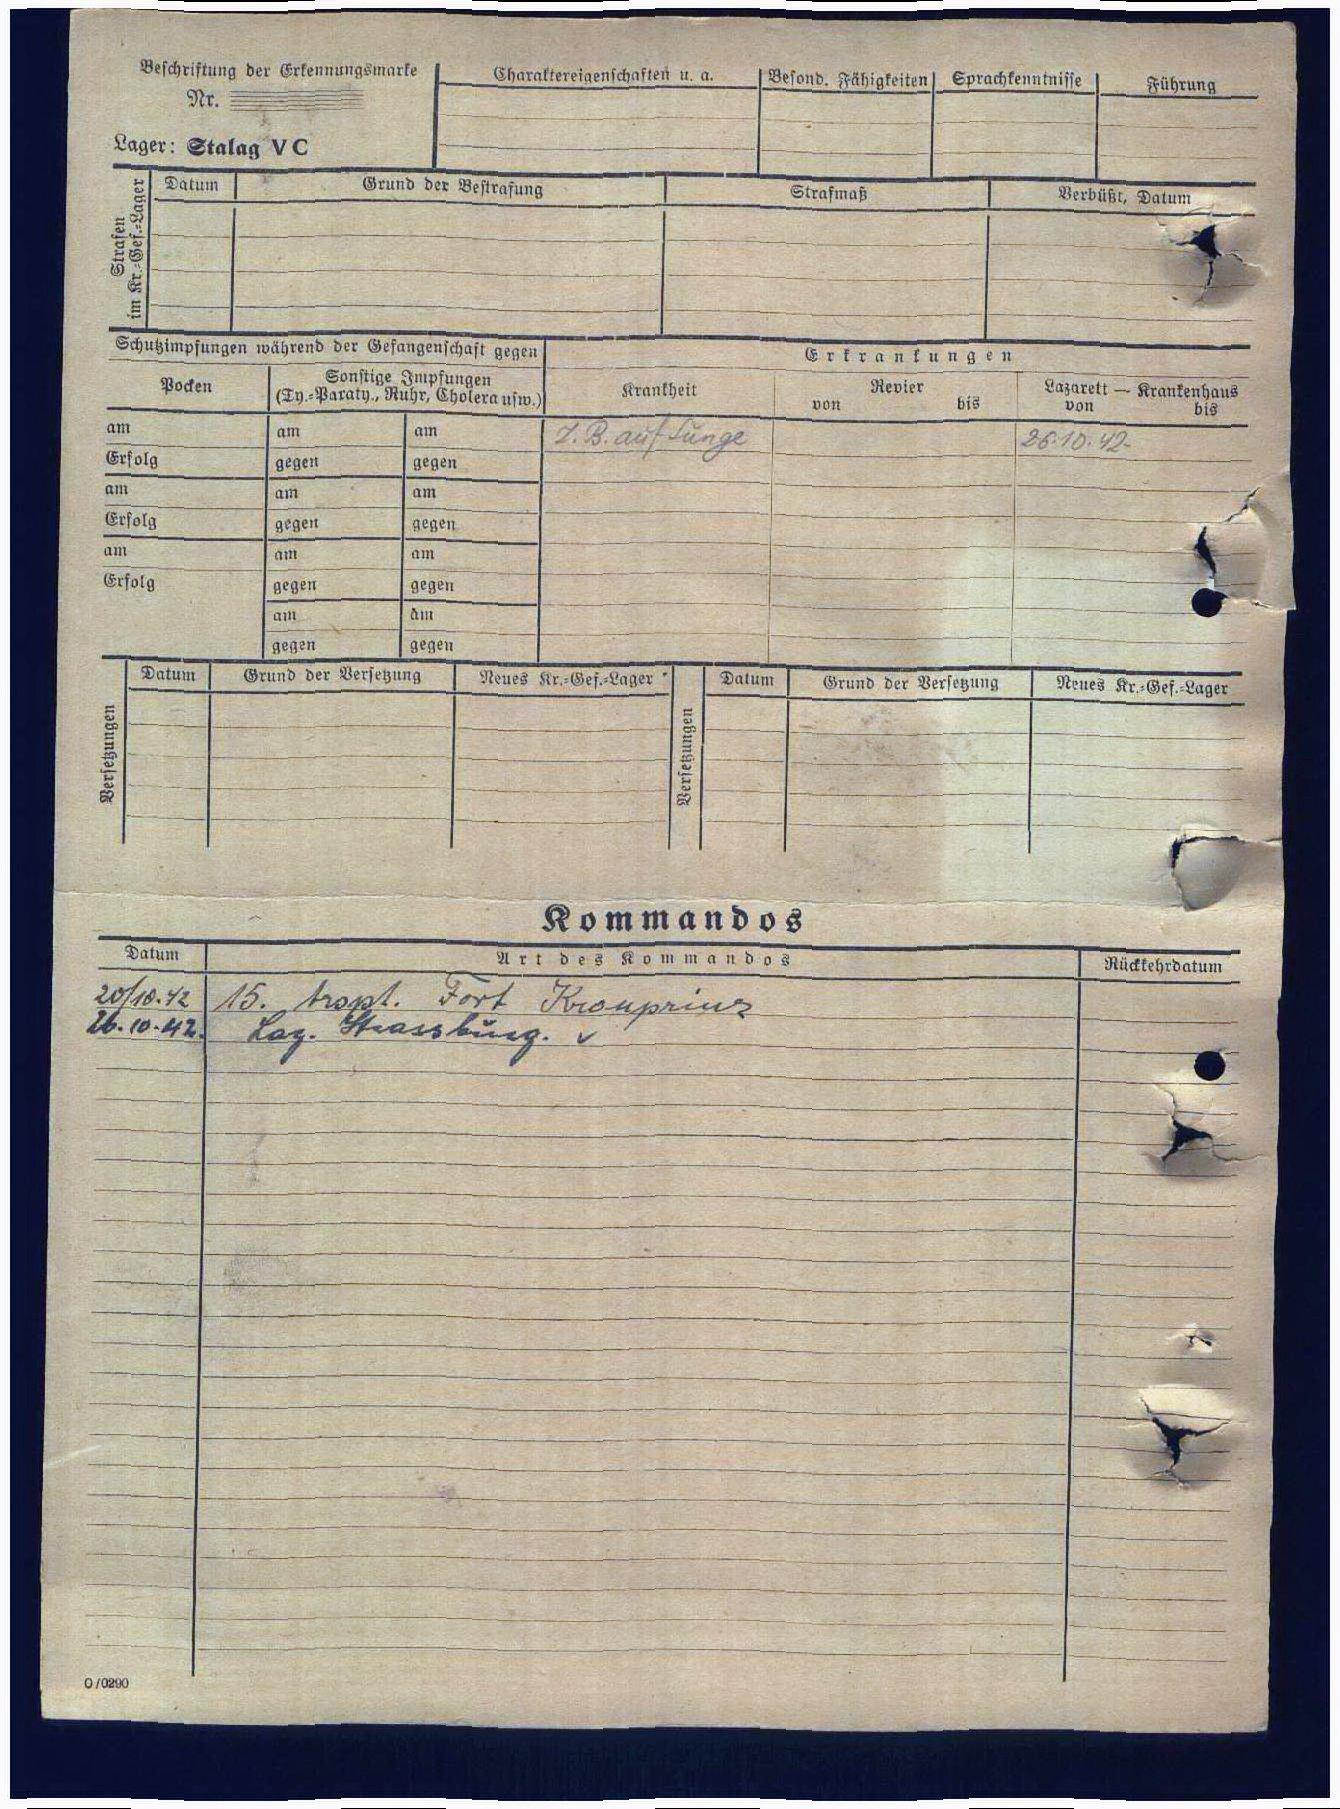 Beschriftung der Erkennungsmarke
Nr.
Lager: Stalag V C
Charaktereigenschaften u. a.
Besond. Fähigkeiten
Sprachkenntnisse
Führung
Strafen
im Kr.-Gef.-Lager
Datum
Grund der Bestrafung
Strafmaß
Verbüßt, Datum
Schutzimpfungen während der Gefangenschaft gegen
Erkrankungen
Pocken
Sonstige Impfungen
(Ty.-Paraty., Ruhr, Cholera usw.)
Krankheit
Revier
von bis
Lazarett — Krankenhaus
von bis
am am am
B. auf Lunge
26.10.42.
Erfolg gegen gegen
am am am
Erfolg gegen gegen
am am am
Erfolg gegen gegen
am am
gegen gegen
Versetzungen
Datum
Grund der Versetzung
Neues Kr.-Gef.-Lager
Versetzungen
Datum
Grund der Versetzung
Neues Kr.-Gef.-Lager
Kommandos
Datum
Art des Kommandos
Rückkehrdatum
20/10.42 15. trspt. Fort Kronprinz
26.10.42. Laz. Strassburg.
O/0290